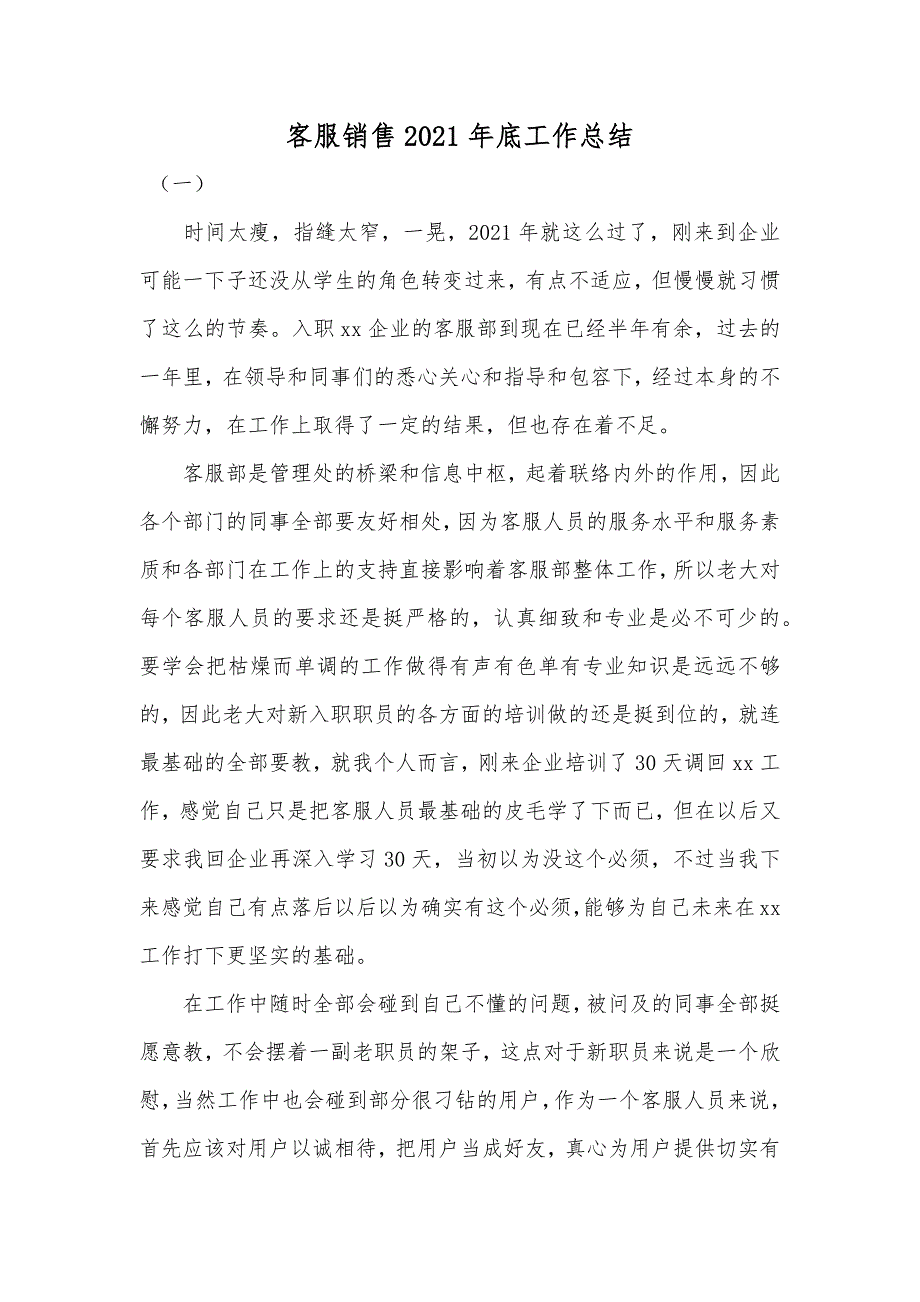 客服销售 2021 年底工作总结
（一）
时间太瘦，指缝太窄，一晃，2021 年就这么过了，刚来到企业
可能一下子还没从学生的角色转变过来，有点不适应，但慢慢就习惯
了这么的节奏。入职 xx 企业的客服部到现在已经半年有余，过去的
一年里，在领导和同事们的悉心关心和指导和包容下，经过本身的不
懈努力，在工作上取得了一定的结果，但也存在着不足。
客服部是管理处的桥梁和信息中枢，起着联络内外的作用，因此
各个部门的同事全部要友好相处，因为客服人员的服务水平和服务素
质和各部门在工作上的支持直接影响着客服部整体工作，所以老大对
每个客服人员的要求还是挺严格的，认真细致和专业是必不可少的。
要学会把枯燥而单调的工作做得有声有色单有专业知识是远远不够
的，因此老大对新入职职员的各方面的培训做的还是挺到位的，就连
最基础的全部要教，就我个人而言，刚来企业培训了 30 天调回 xx 工
作，感觉自己只是把客服人员最基础的皮毛学了下而已，但在以后又
要求我回企业再深入学习 30 天，当初以为没这个必须，不过当我下
来感觉自己有点落后以后以为确实有这个必须，能够为自己未来在 xx
工作打下更坚实的基础。
在工作中随时全部会碰到自己不懂的问题，被问及的同事全部挺
愿意教，不会摆着一副老职员的架子，这点对于新职员来说是一个欣
慰，当然工作中也会碰到部分很刁钻的用户，作为一个客服人员来说，
首先应该对用户以诚相待，把用户当成好友，真心为用户提供切实有